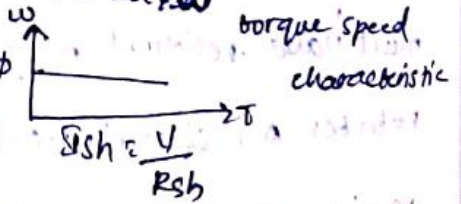 ω
torque speed
characteristic
φ
T
Ish = V
Rsh